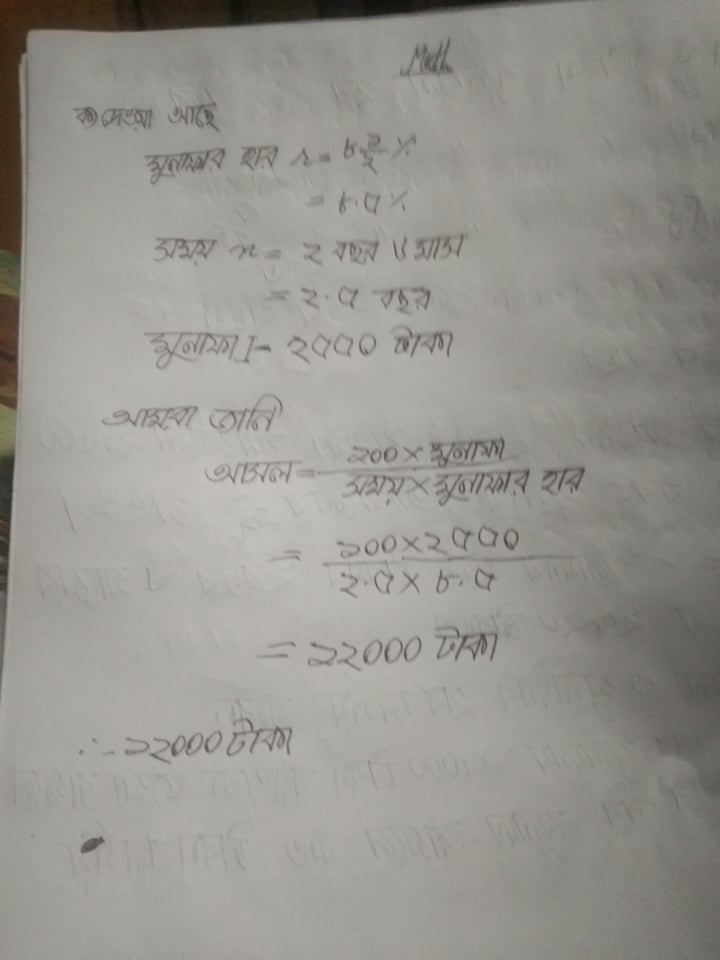 Math
ক) দেওয়া আছে
মুনাফার হার r = ৮ ১/২ %
= ৮.৫%
সময় n = ২ বছর ৬ মাস
= ২.৫ বছর
মুনাফা I = ২৫৫০ টাকা
আমরা জানি
আসল = ১০০ × মুনাফা / সময় × মুনাফার হার
= ১০০ × ২৫৫০ / ২.৫ × ৮.৫
= ১২০০০ টাকা
∴ ১২০০০ টাকা